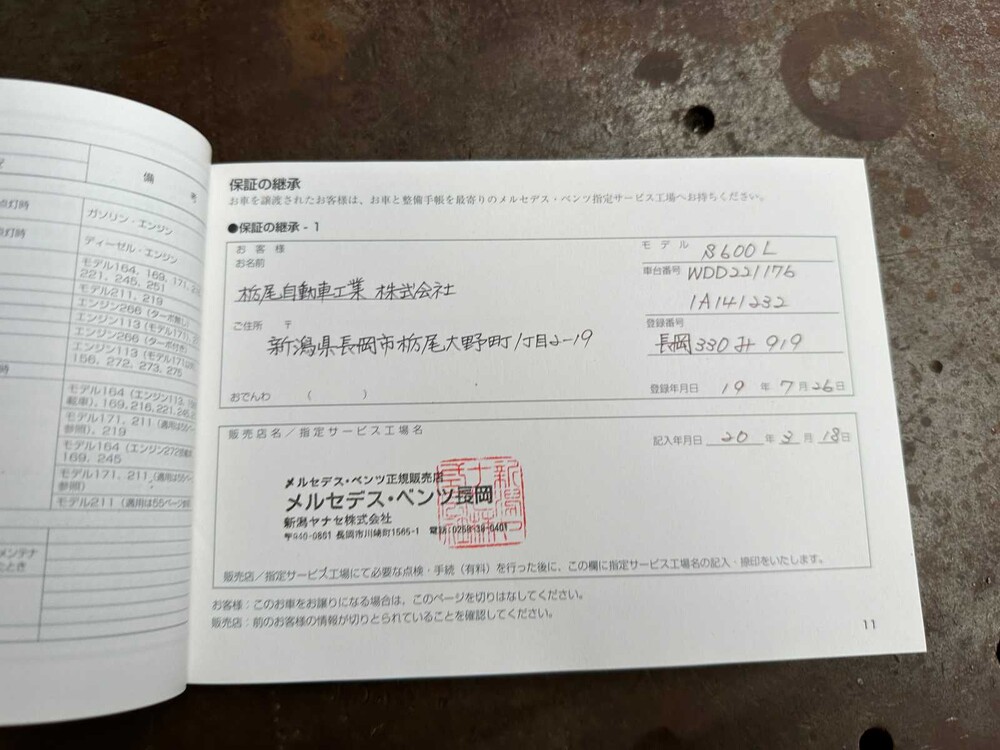 備 考
点灯時
ガソリン・エンジン
点灯時
ディーゼル・エンジン
モデル164, 169, 171,
221, 245, 251
モデル211, 219
エンジン266 (ターボ無し)
エンジン113 (モデル171,
エンジン266 (ターボ付き)
エンジン113 (モデル171
156, 272, 273, 275
時
モデル164 (エンジン113,
169, 216, 221, 245,
モデル171, 211 (適用は55ペ
参照), 219
モデル164 (エンジン272搭載
169, 245
モデル171, 211 (適用は55ペー
参照)
モデル211 (適用は55ページ参照
メンテナ
たとき
保証の継承
お車を譲渡されたお客様は、お車と整備手帳を最寄りのメルセデス・ベンツ指定サービス工場へお持ちください。
●保証の継承 - 1
お 客 様
お名前
栃尾自動車工業 株式会社
ご住所 〒
新潟県長岡市栃尾大野町1丁目2-19
おでんわ ( )
モ デ ル S600L
車台番号 WDD221176
1A141232
登録番号
長岡 330 み 919
登録年月日 19 年 7 月 26 日
販売店名/指定サービス工場名
記入年月日 20 年 3 月 18 日
メルセデス・ベンツ正規販売店
メルセデス・ベンツ長岡
新潟ヤナセ株式会社
〒940-0861 長岡市川崎町1565-1 電話:0258-39-0401
販売店/指定サービス工場にて必要な点検・手続(有料)を行った後に、この欄に指定サービス工場名の記入・捺印をいたします。
お客様:このお車をお譲りになる場合は、このページを切りはなしてください。
販売店:前のお客様の情報が切りとられていることを確認してください。
11